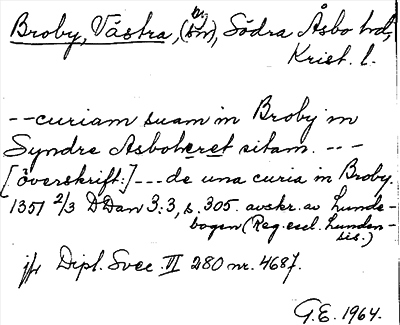 Broby, Västra, (by), Södra Åsbo hd,
Krist. l.
--curiam suam in Broby in
Syndre Asboheret sitam. ---
[överskrift:] --- de una curia in Broby.
1351 2/3 DDan 3:3, s. 305. avskr. av Lunde-
bogen (Reg. eccl. Lunden-
sis.)
jfr Dipl. Svec. VI 280 nr. 4687.
G.E. 1964.